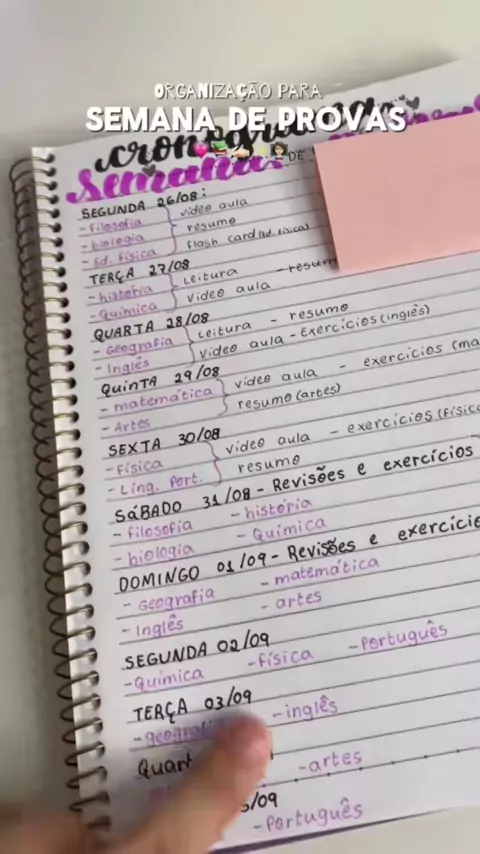 ORGANIZAÇÃO PARA
SEMANA DE PROVAS
cronograma
Semana DE
SEGUNDA 26/08:
- filosofia
- biologia
- Ed. física
video aula
resumo
flash card (ed. física)
TERÇA 27/08
- história
- Química
Leitura - resum
Video aula
QUARTA 28/08
- Geografia
- Inglês
Leitura - resumo
Video aula - Exercícios (inglês)
QuinTA 29/08
- matemática
- Artes
video aula - exercícios (ma
resumo (artes)
SEXTA 30/08
- Física
- Ling. Port.
video aula - exercícios (físic
resumo
SáBADO 31/08 - Revisões e exercícios
- filosofia - história
- biologia - Química
DOMINGO 01/09 - Revisões e exercície
- Geografia - matemática
- Inglês - artes
SEGUNDA 02/09
- Química - Física - Português
TERÇA 03/09
- geograf - inglês
Quart
- artes
/09
- Português